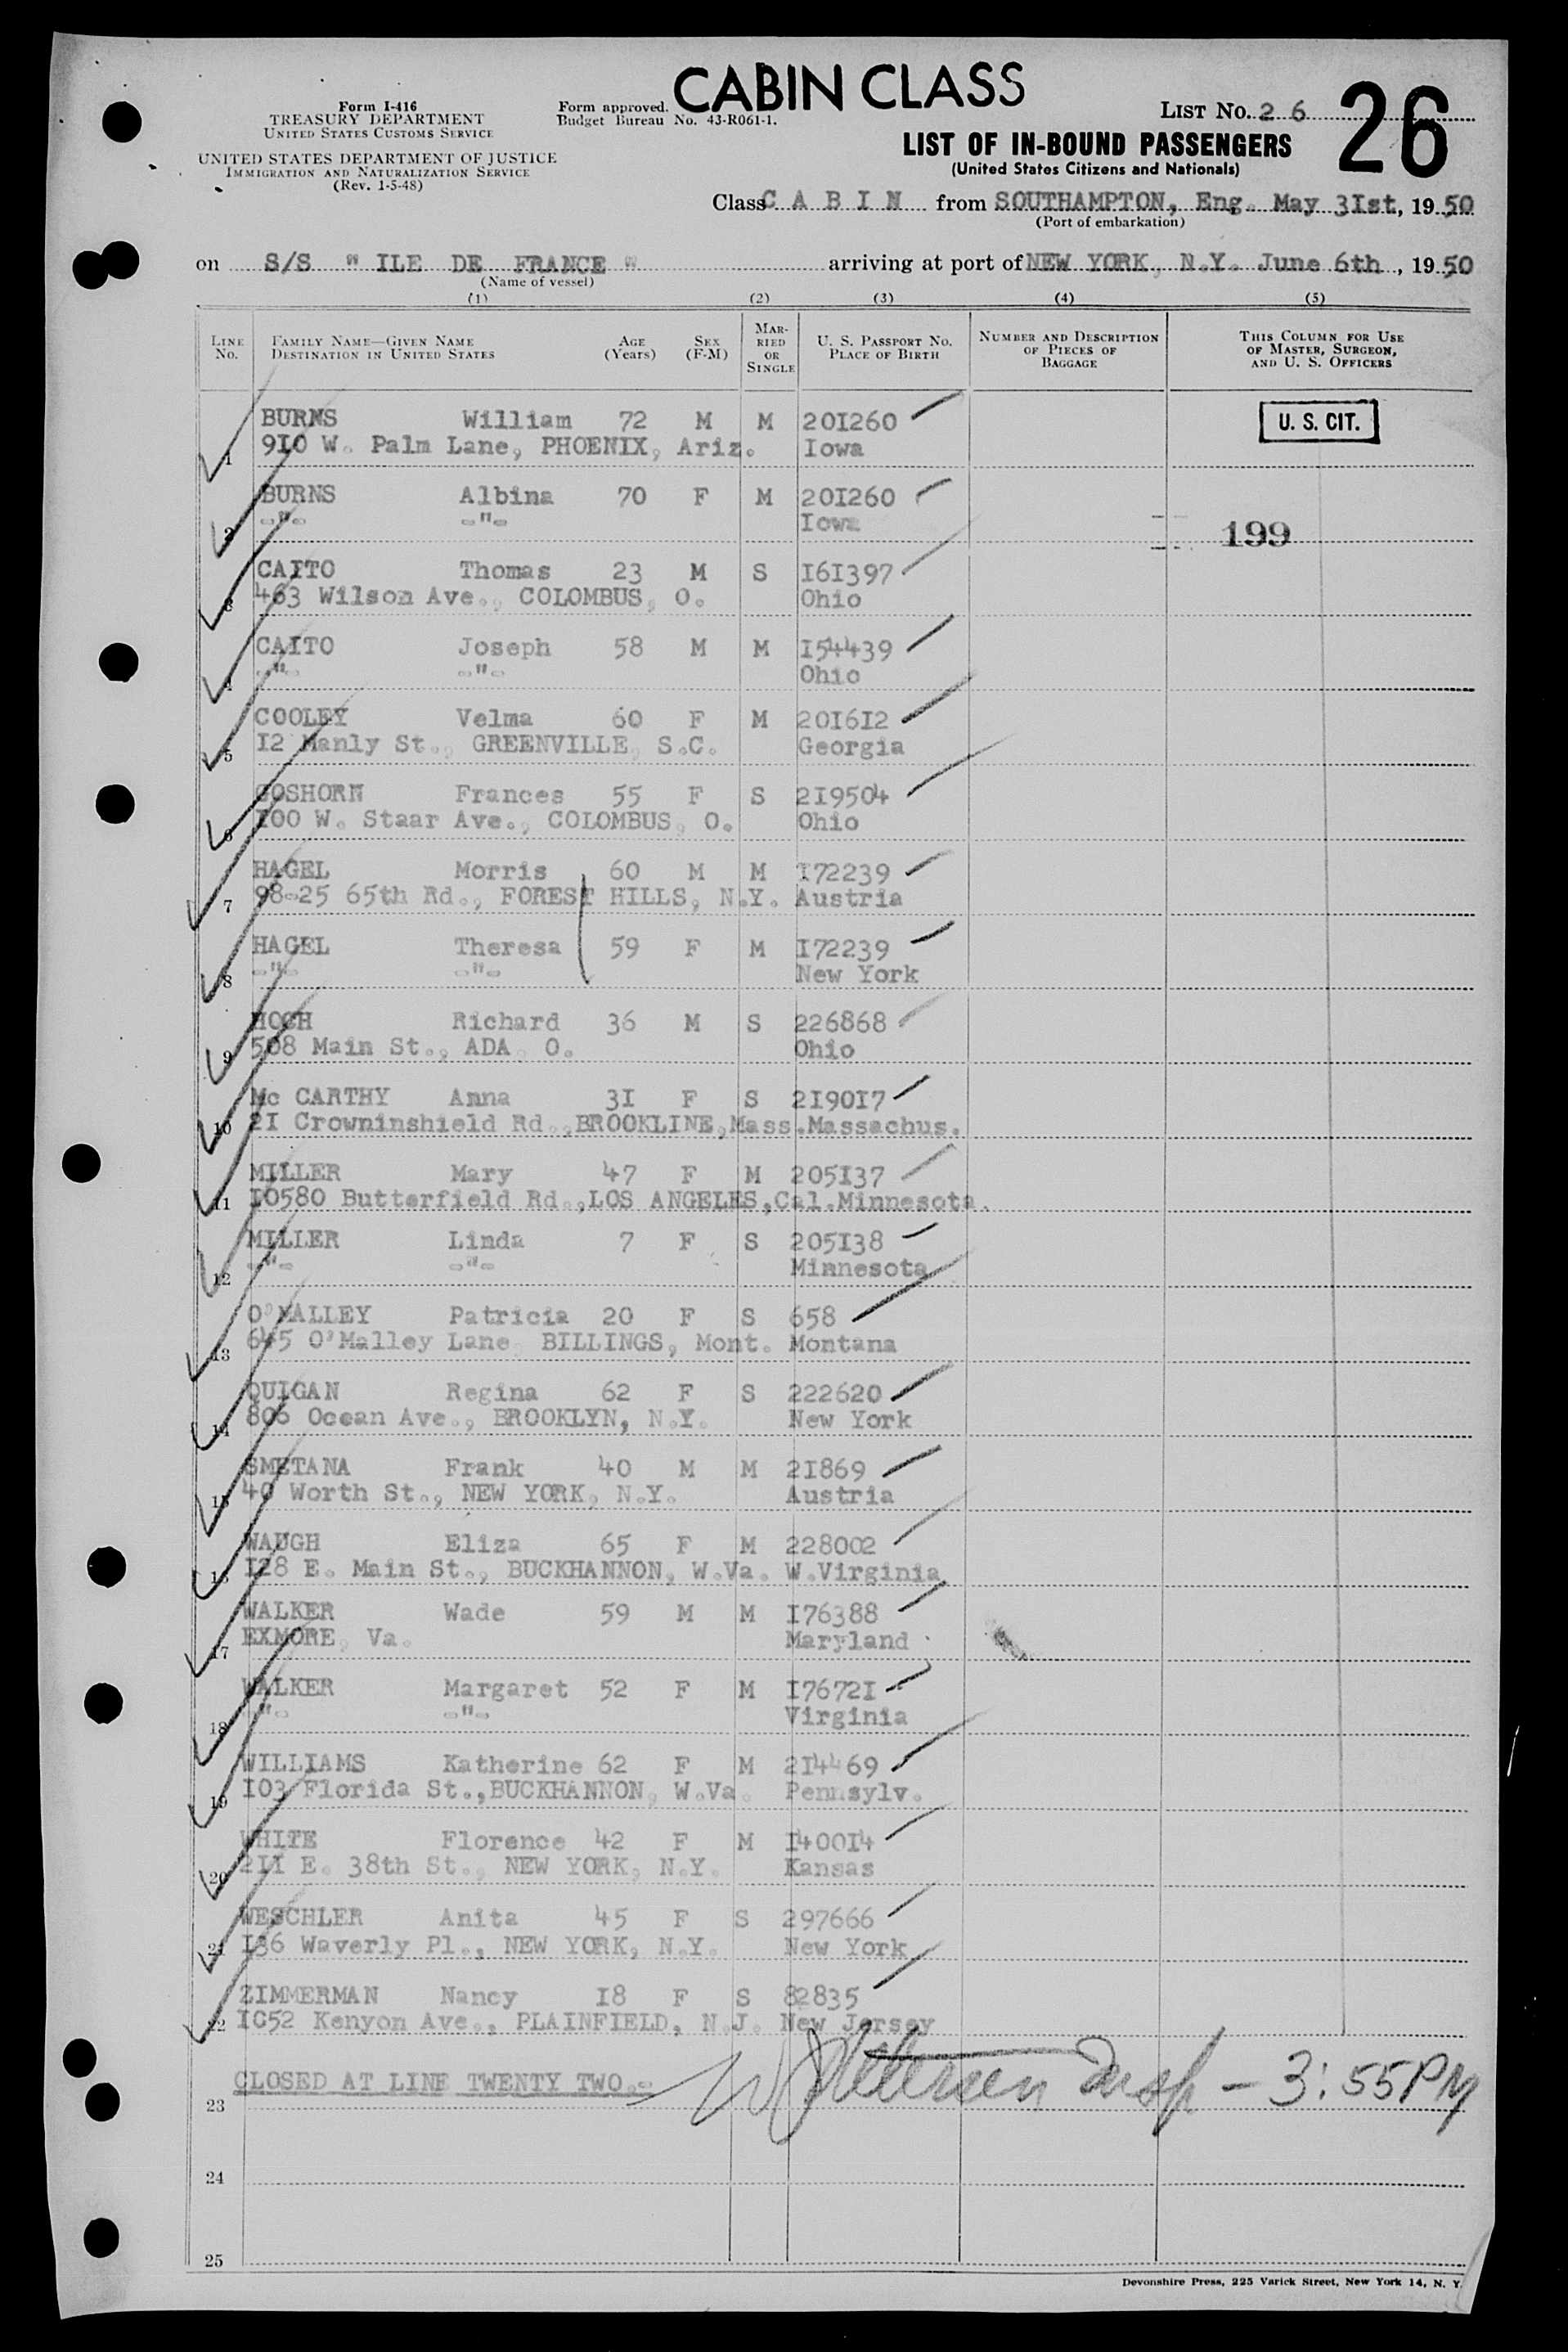 CABIN CLASS
Form I-416
TREASURY DEPARTMENT
UNITED STATES CUSTOMS SERVICE
Form approved.
Budget Bureau No. 43-R061-1.
LIST No. 26
26
UNITED STATES DEPARTMENT OF JUSTICE
IMMIGRATION AND NATURALIZATION SERVICE
(Rev. 1-5-48)
LIST OF IN-BOUND PASSENGERS
(United States Citizens and Nationals)
Class C A B I N from SOUTHAMPTON, Eng. May 3Ist, 1950
(Port of embarkation)
on S/S " ILE DE FRANCE " arriving at port of NEW YORK, N.Y. June 6th, 1950
(Name of vessel)
(1) (2) (3) (4) (5)
LINE No. FAMILY NAME—GIVEN NAME DESTINATION IN UNITED STATES AGE (Years) SEX (F-M) MARRIED OR SINGLE U. S. PASSPORT No. PLACE OF BIRTH NUMBER AND DESCRIPTION OF PIECES OF BAGGAGE THIS COLUMN FOR USE OF MASTER, SURGEON, AND U. S. OFFICERS
BURNS William 72 M M 20I260 U. S. CIT.
1 9I0 W. Palm Lane, PHOENIX, Ariz. Iowa
BURNS Albina 70 F M 20I260
2 -"- -"- Iowa 199
CAITO Thomas 23 M S I6I397
3 463 Wilson Ave., COLOMBUS, O. Ohio
CAITO Joseph 58 M M I54439
4 -"- -"- Ohio
COOLEY Velma 60 F M 20I6I2
5 I2 Manly St., GREENVILLE, S.C. Georgia
GOSHORN Frances 55 F S 2I9504
6 I00 W. Staar Ave., COLOMBUS, O. Ohio
HAGEL Morris 60 M M I72239
7 98-25 65th Rd., FOREST HILLS, N.Y. Austria
HAGEL Theresa 59 F M I72239
8 -"- -"- New York
HOCH Richard 36 M S 226868
9 508 Main St., ADA, O. Ohio
Mc CARTHY Anna 3I F S 2I90I7
10 2I Crowninshield Rd.,BROOKLINE,Mass.Massachus.
MILLER Mary 47 F M 205I37
11 I0580 Butterfield Rd.,LOS ANGELES,Cal.Minnesota.
MILLER Linda 7 F S 205I38
12 -"- -"- Minnesota
O'MALLEY Patricia 20 F S 658
13 645 O'Malley Lane, BILLINGS, Mont. Montana
QUIGAN Regina 62 F S 222620
14 806 Ocean Ave., BROOKLYN, N.Y. New York
SMETANA Frank 40 M M 2I869
15 40 Worth St., NEW YORK, N.Y. Austria
WAUGH Eliza 65 F M 228002
16 I28 E. Main St., BUCKHANNON, W.Va. W.Virginia
WALKER Wade 59 M M I76388
17 EXMORE, Va. Maryland
WALKER Margaret 52 F M I7672I
18 -"- -"- Virginia
WILLIAMS Katherine 62 F M 2I4469
19 I03 Florida St.,BUCKHANNON, W.Va. Pennsylv.
WHITE Florence 42 F M I400I4
20 2II E. 38th St., NEW YORK, N.Y. Kansas
WESCHLER Anita 45 F S 297666
21 I36 Waverly Pl., NEW YORK, N.Y. New York
ZIMMERMAN Nancy I8 F S 82835
22 I052 Kenyon Ave., PLAINFIELD, N.J. New Jersey
CLOSED AT LINE TWENTY TWO.- Insp - 3:55 PM
23
24
25
Devonshire Press, 225 Varick Street, New York 14, N. Y.